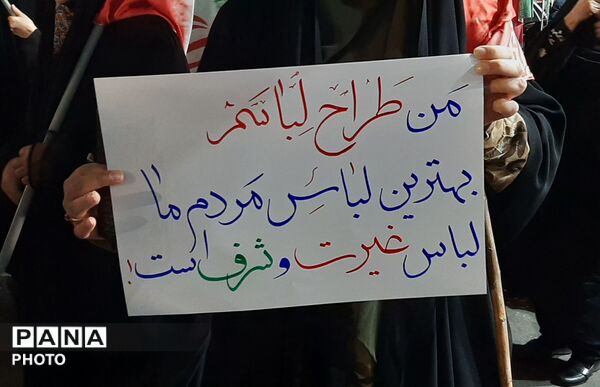 من طراح لباسم
بهترین لباسِ مردم ما
لباس غیرت و شرف است!
PANA
PHOTO